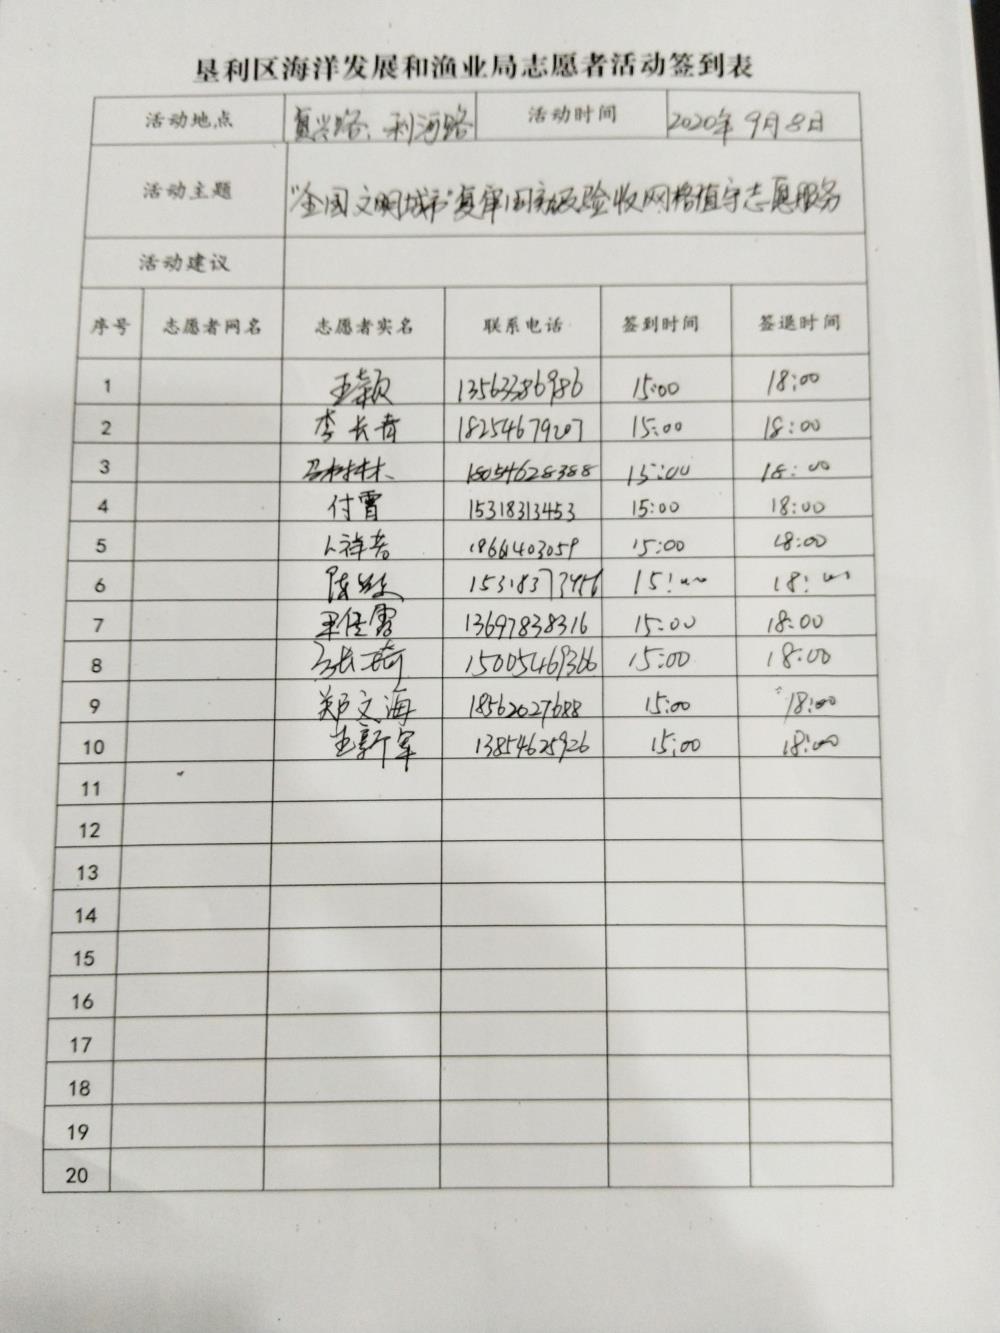 垦利区海洋发展和渔业局志愿者活动签到表
活动地点 复兴路、利河路 活动时间 2020年9月8日
活动主题 "全国文明城市"复审国家级验收网格值守志愿服务
活动建议
序号 志愿者网名 志愿者实名 联系电话 签到时间 签退时间
1 王颖 13563386986 15:00 18:00
2 李长青 18254679207 15:00 18:00
3 马林林 18054628388 15:00 18:00
4 付霄 15318313453 15:00 18:00
5 18661403059 15:00 18:00
6 陈 15318373456 15:00 18:00
7 佳雪 13697838316 15:00 18:00
8 15005469366 15:00 18:00
9 郑文海 18562027688 15:00 18:00
10 王新军 13854625926 15:00 18:00
11
12
13
14
15
16
17
18
19
20